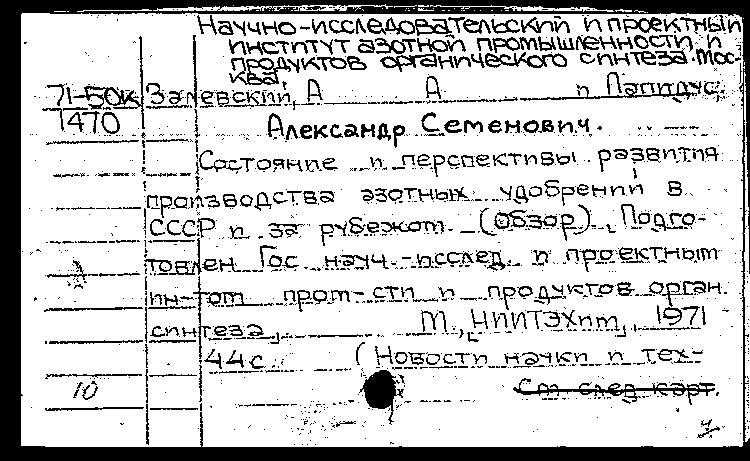 Научно-исследовательский и проектный
институт азотной промышленности и
продуктов органического синтеза. Мос-
ква.
71-50к Залевский, А А и Лапидус,
1470 Александр Семенович.
Состояние и перспективы развития
производства азотных удобрений в
СССР и за рубежом. (Обзор). Подго-
товлен Гос науч.-исслед. и проектным
ин-том пром-сти и продуктов орган.
синтеза, М., НИИТЭХим, 1971
44с (Новости науки и тех-
10 См след карт.
4